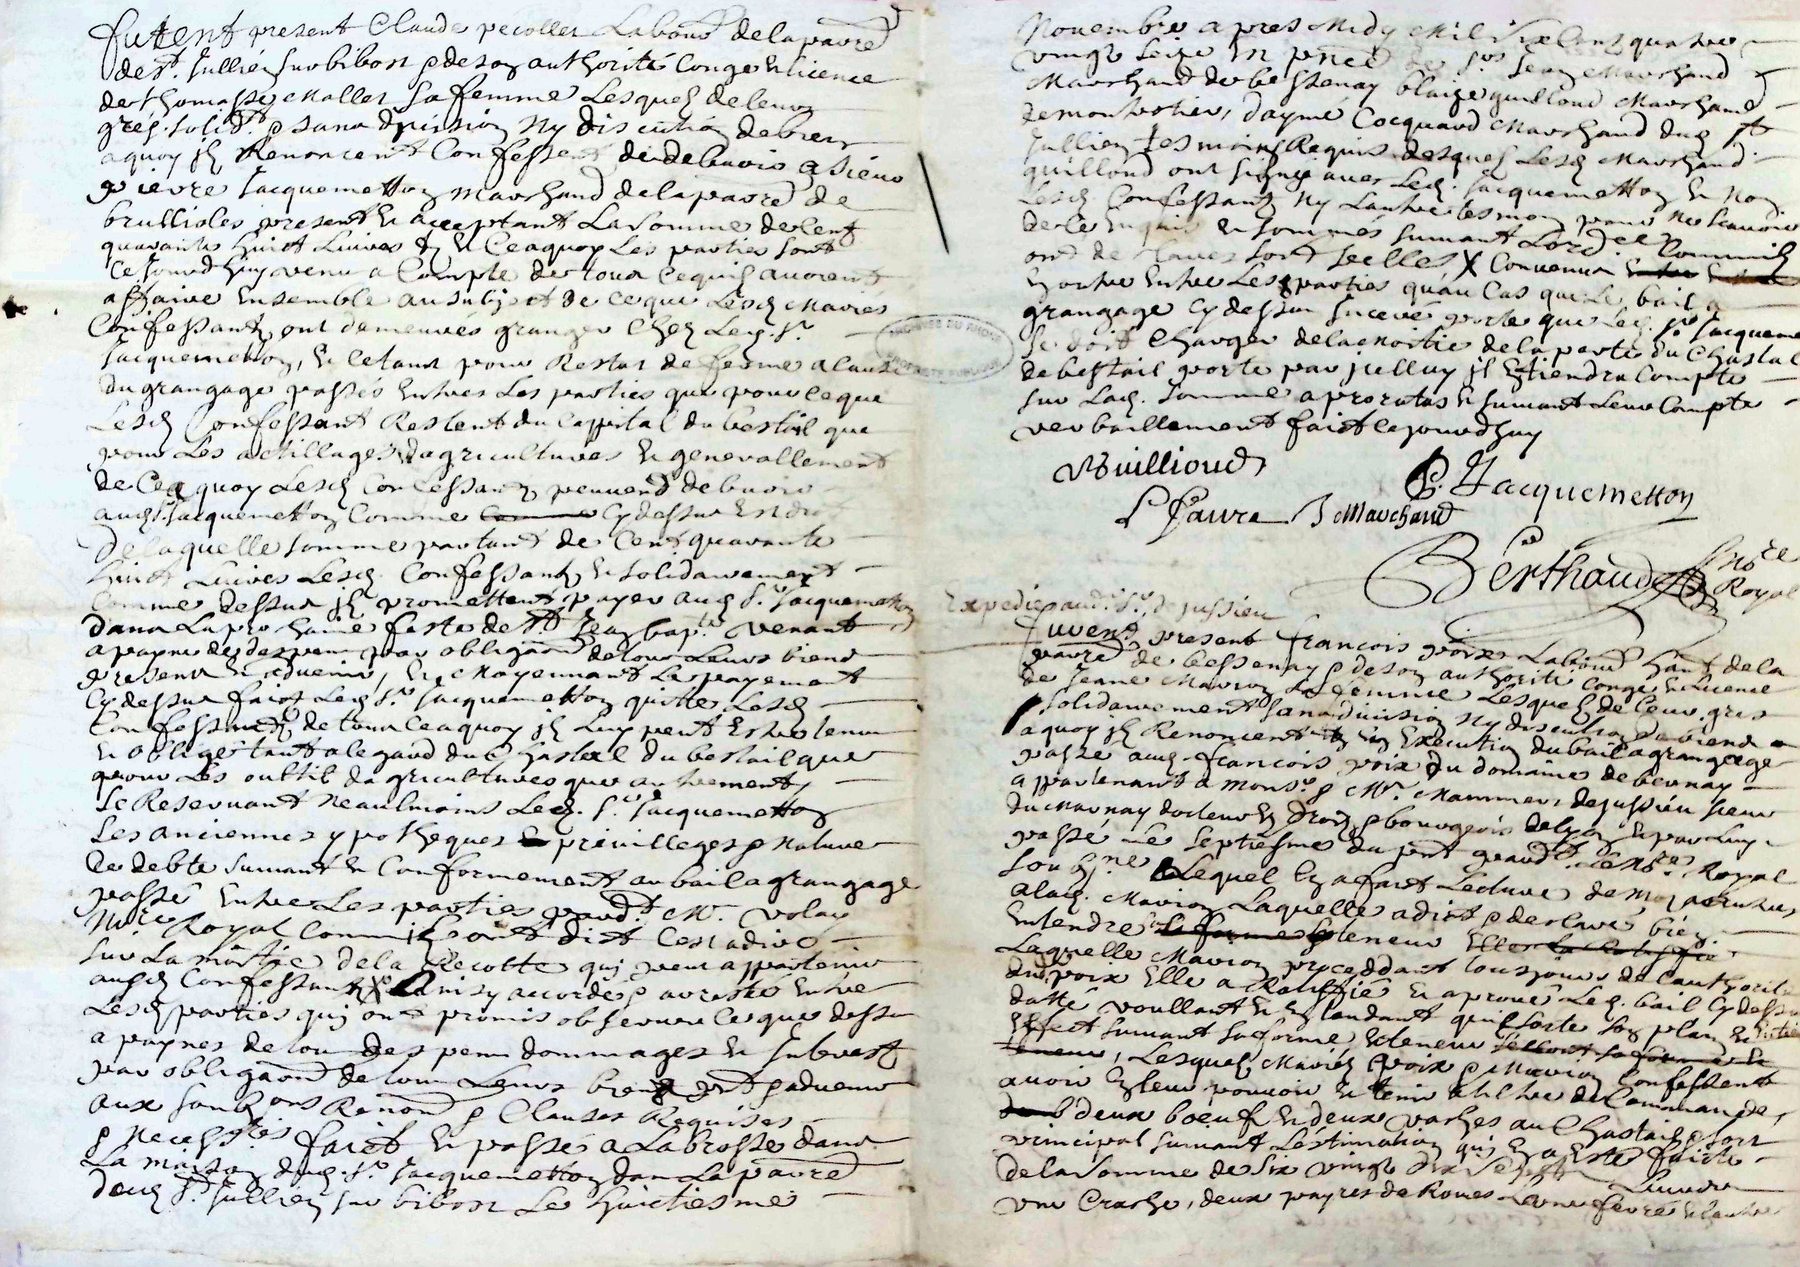 furent present Claude pecollet Labour dela parre
de st. Jullien sur bibost & de son authorité Conge & licence
de thomasse Mallet sa femme Lesquelz de leurs
grés solid. & sans division Ny discution de biens
a quoy ilz Renoncent Confessent de debvoir a sieur
pierre Jacquemetton Marchand dela parre de
brullioles present & acceptant La somme de Cent
quarante huict Livres & Ce a quoy Les parties sont
Ce jourdhuy venu a Compte de tous Ce quilz avoient
affaire Ensemble au subject de Ce que Lesd. Maries
Confessantz ont demeurés granger Chez Led. Sr.
Jacquemetton, & Ce tant pour Restat de ferme a Cause
du grangage passés Entres Les parties que pour Ce que
Lesd. Confessant Restent du Cappital du bestail que
pour Les actillages dagricultures & generallement
de Ce a quoy Lesd. Confessantz peuvend debvoir
aud. Sr. Jacquemetton Comme Cy dessus Est dict
De laquelle somme partant de Cent quarante
huict Livres Lesd. Confessantz & solidairement
Comme dessus ilz promettent payer aud. Sr. Jacquemetton
dans La prochaine feste de St. Jean bap.te venant
a paynes de despens par obligaon de tous Leurs biens
presens & advenir, & Moyennant Le payement
Cy dessus faict Led. Sr. Jacquemetton quitte Lesd.
Confessantz de tous Ce a quoy ilz Luy peut Estre tenu
& obligé tant a legard du Chastal du bestail que
pour Les oultilz dagricultures que autrement
Se Reservant neaulmoins Led. Sr. Jacquemetton
Les anciennes ypotheques privilleges & Nature
de debte suivant & Conformement au bail a grangage
passé Entre Les parties pard. Mr. Volay
No.re Royal Comme ilz ont dict Cest a dire
sur La moitie dela Recolte qui peut appartenir
ausd. Confessantz X Ainsy accordé & arresté Entre
Lesd. parties qui ont promis observer Ce que dessus
a paynes de tous despens dommages & Interest
par obligaon de tous Leurs biens pnt & advenir
aux soub.ons Renon. & Clauses Requises
& necess.tes faict & passé a Labrosse dans
La maison dud. Sr. Jacquemetton dans La parre
dud. St. Jullien sur bibost Le huictiesme
Novembre apres Midy Mil six Cent quatre
vingt seize En pnce de Srs Jean Marchand
Marchand de bessenay blaize guilloud Marchand
de montrotier, dayme Cocquard Marchand dud. St.
Jullien tesmoins Requis desquels Lesd. Marchand
guilloud ont signé avec Led. Jacquemetton & Non
Lesd. Confessantz Ny Lautre tesmoin pour Ne scavoir
de Ce Enquis & sommés suivant Lord.ce
X Convenu
En outre Entre Les parties quau Cas que Le bail a
grangage Cy dessus Inceré porte que Led. Sr. Jacquemetton
se doit Charger dela moitie dela perte du Chastal
de bestail porte par Icelluy il En tiendra Compte
sur Lad. somme a proratas & suivant Leur Compte
verbaillement faict Ce jourdhuy
Vuillioud
P. Jacquemetton
Faure J Marchand
Berthaud No.re Royal
Expedie aud. Sr. De jussieu
furent present francois poix Labour hant de la
parre de bessenay & de son authorité Conge & licence
de Jeanne Marion sa femme Lesquelz de leur gres
solidairement sans division Ny discution de biens
a quoy ilz Renoncent En Execution du bail a grangage
passé aud. francois poix du domaine de bernay
appartenant a Monsr. Mr. Mammer, dejussieu sieur
du Marnay docteur En droitz & bourgeois de lyon & par Luy
passé Le septiesme du pnt pardt. Le No.re Royal
soubzne Lequel En a faict Lecture de mot a autres
a Lad. Marion Laquelle a dict & declaré bien
Entendre teneur
Laquelle Marion proceddant tousjours de lauthorité
dud. poix Elle a Ratiffié & aprouve Led. bail Cy dessus
datté voullant & Entendant quil sorte son plain & Entier
Effect suivant sa forme & teneur
Lesquelz Mariés poix & Marion Confessent
avoir En leur pouvoir & tenir a tiltre de Commande,
deux boeufz & deux vaches au Chastail & sort
principal suivant Lestimation qui En a Esté faicte
dela somme de six vingt dix sept Livres
une Crache, deux payres de Roues